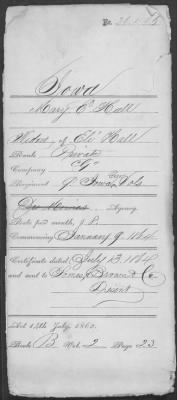 No.
Iowa
Mary E Hall
Widow of Eli Hall
Rank Private
Company "G"
Regiment 9 Iowa Cav Vols
Des Moines Agency
Rate per month, 8.
Commencing January 9 1864
Certificate dated July 13 1864
and sent to Jones Brown & Co
Present
Act 14th July, 1862.
Book B Vol. 2 Page 23